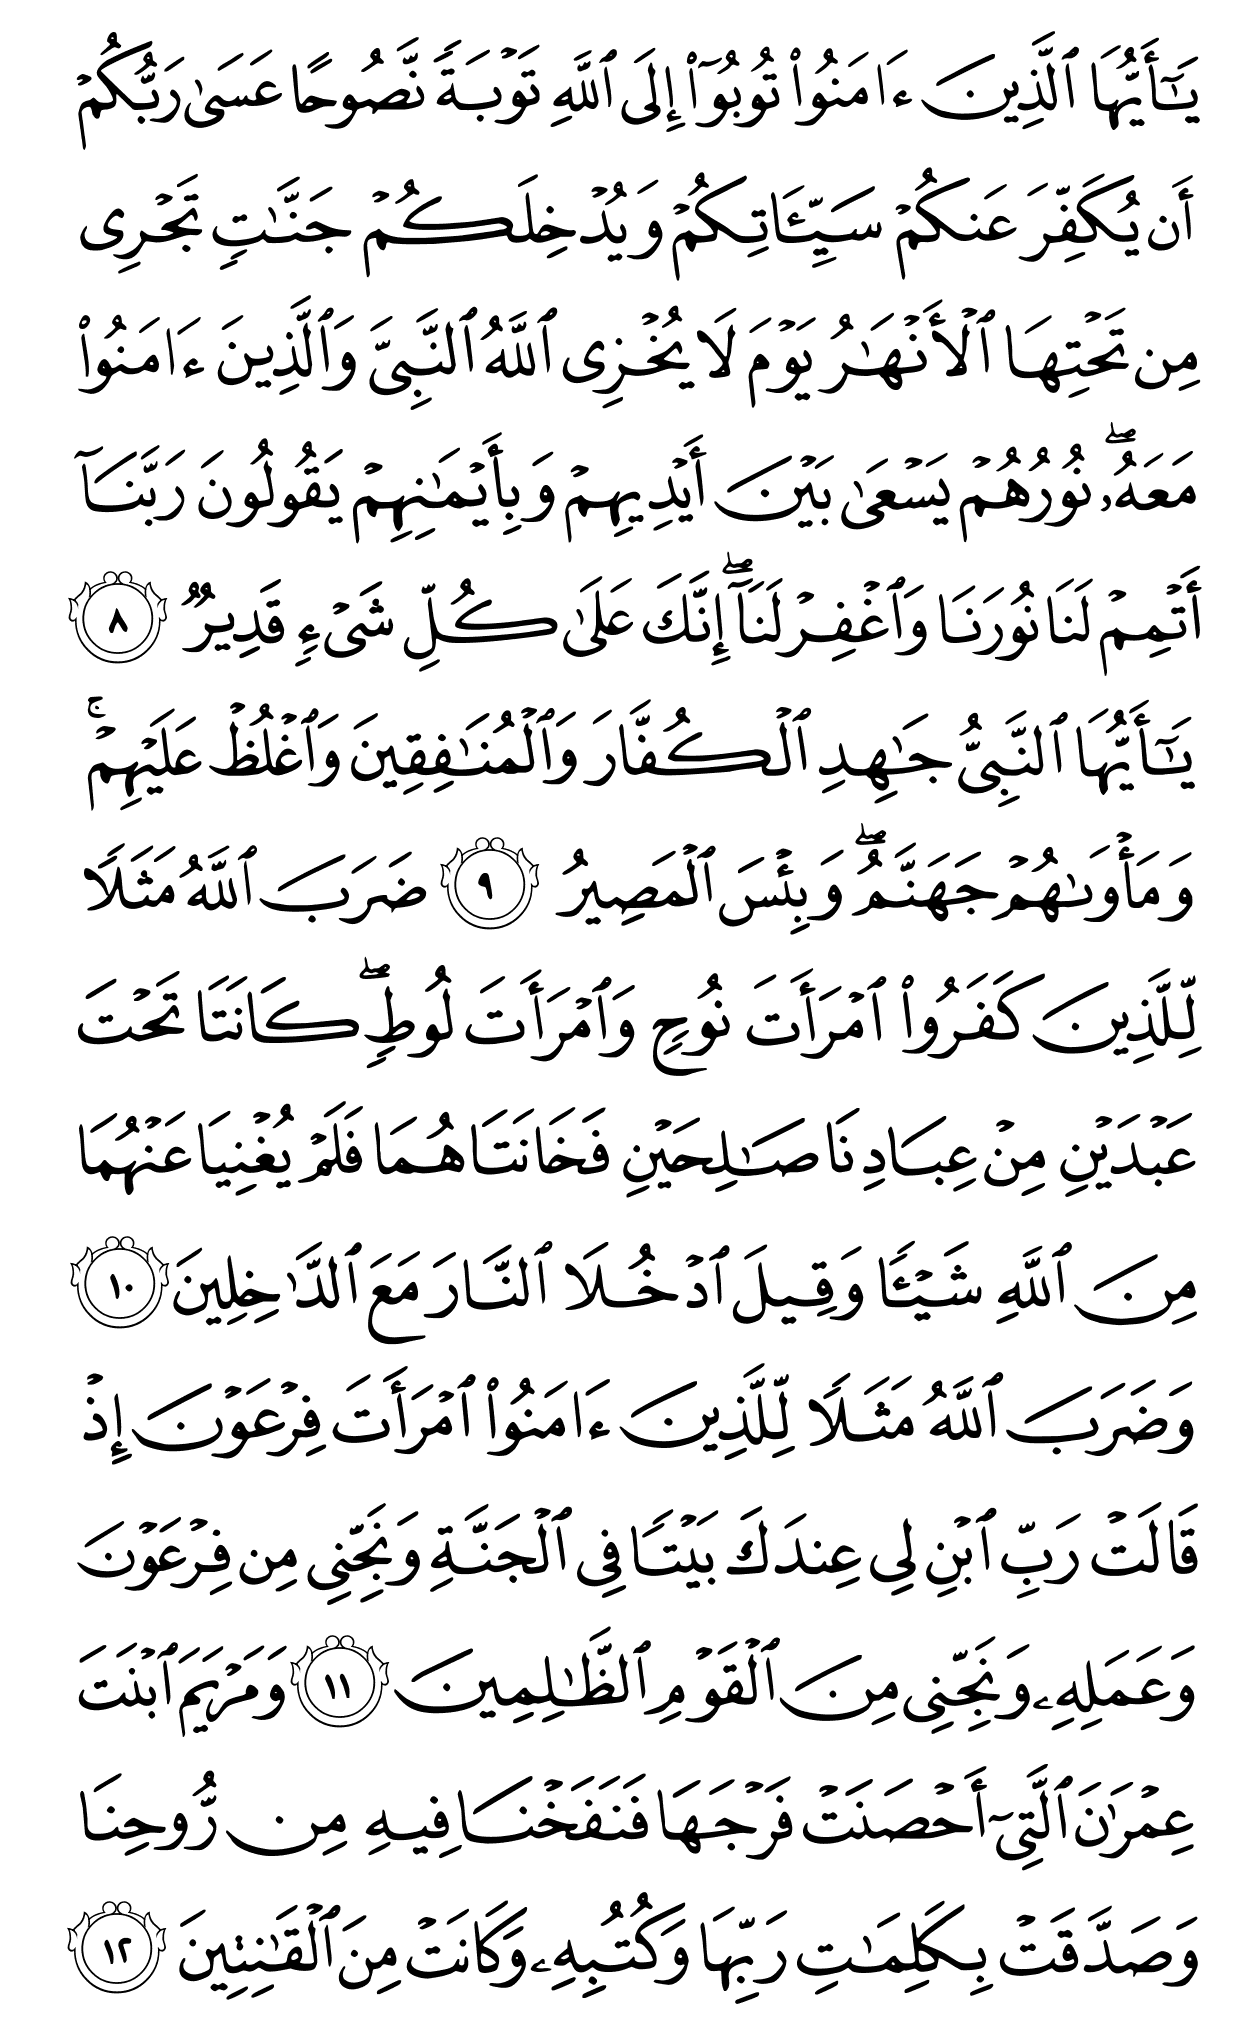 يَـٰٓأَيُّهَا ٱلَّذِينَ ءَامَنُوا۟ تُوبُوٓا۟ إِلَى ٱللَّهِ تَوْبَةً نَّصُوحًا عَسَىٰ رَبُّكُمْ
أَن يُكَفِّرَ عَنكُمْ سَيِّـَٔاتِكُمْ وَيُدْخِلَكُمْ جَنَّـٰتٍ تَجْرِى
مِن تَحْتِهَا ٱلْأَنْهَـٰرُ يَوْمَ لَا يُخْزِى ٱللَّهُ ٱلنَّبِىَّ وَٱلَّذِينَ ءَامَنُوا۟
مَعَهُۥ ۖ نُورُهُمْ يَسْعَىٰ بَيْنَ أَيْدِيهِمْ وَبِأَيْمَـٰنِهِمْ يَقُولُونَ رَبَّنَآ
أَتْمِمْ لَنَا نُورَنَا وَٱغْفِرْ لَنَآ ۖ إِنَّكَ عَلَىٰ كُلِّ شَىْءٍ قَدِيرٌ ٨
يَـٰٓأَيُّهَا ٱلنَّبِىُّ جَـٰهِدِ ٱلْكُفَّارَ وَٱلْمُنَـٰفِقِينَ وَٱغْلُظْ عَلَيْهِمْ ۚ
وَمَأْوَىٰهُمْ جَهَنَّمُ ۖ وَبِئْسَ ٱلْمَصِيرُ ٩ ضَرَبَ ٱللَّهُ مَثَلًا
لِّلَّذِينَ كَفَرُوا۟ ٱمْرَأَتَ نُوحٍ وَٱمْرَأَتَ لُوطٍ ۖ كَانَتَا تَحْتَ
عَبْدَيْنِ مِنْ عِبَادِنَا صَـٰلِحَيْنِ فَخَانَتَاهُمَا فَلَمْ يُغْنِيَا عَنْهُمَا
مِنَ ٱللَّهِ شَيْـًٔا وَقِيلَ ٱدْخُلَا ٱلنَّارَ مَعَ ٱلدَّٰخِلِينَ ١٠
وَضَرَبَ ٱللَّهُ مَثَلًا لِّلَّذِينَ ءَامَنُوا۟ ٱمْرَأَتَ فِرْعَوْنَ إِذْ
قَالَتْ رَبِّ ٱبْنِ لِى عِندَكَ بَيْتًا فِى ٱلْجَنَّةِ وَنَجِّنِى مِن فِرْعَوْنَ
وَعَمَلِهِۦ وَنَجِّنِى مِنَ ٱلْقَوْمِ ٱلظَّـٰلِمِينَ ١١ وَمَرْيَمَ ٱبْنَتَ
عِمْرَٰنَ ٱلَّتِىٓ أَحْصَنَتْ فَرْجَهَا فَنَفَخْنَا فِيهِ مِن رُّوحِنَا
وَصَدَّقَتْ بِكَلِمَـٰتِ رَبِّهَا وَكُتُبِهِۦ وَكَانَتْ مِنَ ٱلْقَـٰنِتِينَ ١٢